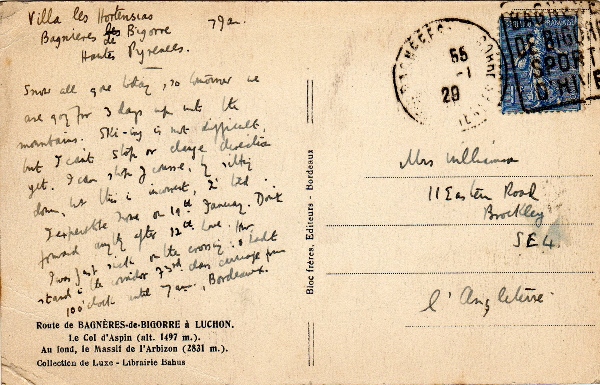 Villa les Hortensias
Bagnières de Bigorre
Hautes Pyrenees.
Snow all gone today, so tomorrow we
are going for 3 days up into the
mountains. Ski-ing is not difficult,
but I can't stop or change direction
yet. I can stop of course, by sitting
down, but this is incorrect, I'm told.
I expect be home on 19th January. Don't
forward anything after 12th Love.
I was just sick on the crossing: & had to
stand in the corridor of 3rd class carriage from
10 o'clock until 7 am, Bordeaux.
Route de BAGNÈRES-de-BIGORRE à LUCHON.
Le Col d'Aspin (alt. 1497 m.).
Au fond, le Massif de l'Arbizon (2831 m.).
Collection de Luxe - Librairie Bahus
Bloc frères, Editeurs - Bordeaux
55
-1
29
BAGNÈRES
DE BIGORRE
SPORTS
D'HIVER
Mrs Williamson
11 Eastern Road
Brockley
SE4.
l'Angleterre